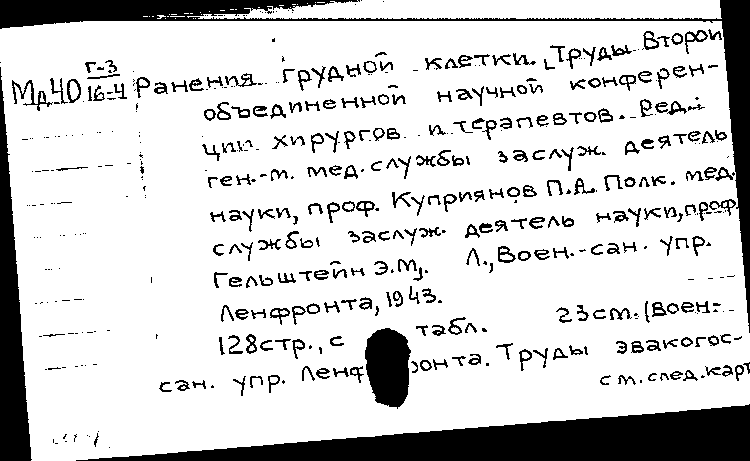 Мд40 Г-3/16-4 Ранения грудной клетки. Труды Второй
объединенной научной конферен-
ции хирургов и терапевтов. Ред.:
ген.-м. мед. службы заслуж. деятель
науки, проф. Куприянов П.А. Полк. мед.
службы заслуж. деятель науки, проф.
Гельштейн Э.М. Л., Воен.-сан. упр.
Ленфронта, 1943.
128стр., с табл. 23см. (Воен.-
сан. упр. Ленфронта. Труды эвакогос-
см. след. карт